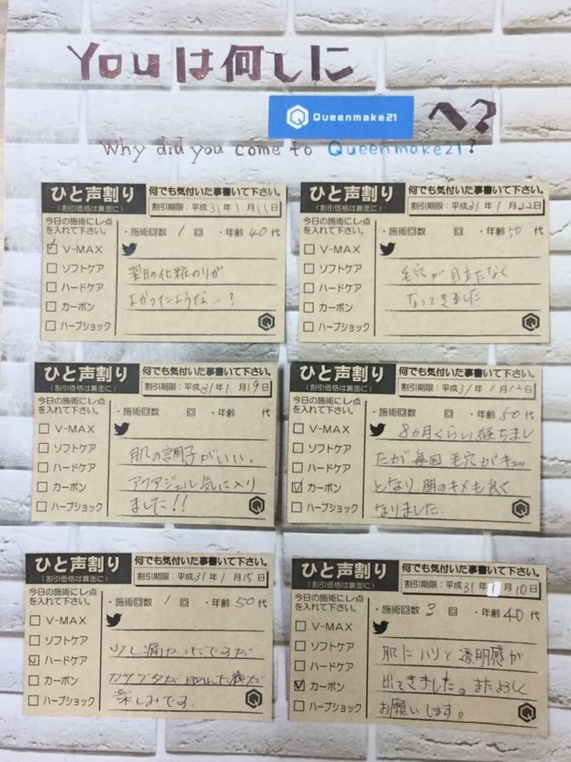 Youは何しに
Queenmake21 へ?
Why did you come to Queenmake21?
ひと声割り
(割引価格は裏面に)
何でも気付いた事書いて下さい。
割引期限:平成31年1月11日
今日の施術にレ点
を入れて下さい。
・施術回数 1 回 ・年齢 40代
V-MAX
ソフトケア
ハードケア
カーボン
ハーブショック
翌日の化粧のりが
よかったような…?
ひと声割り
(割引価格は裏面に)
何でも気付いた事書いて下さい。
割引期限:平成31年1月22日
今日の施術にレ点
を入れて下さい。
・施術回数 回 ・年齢 50代
V-MAX
ソフトケア
ハードケア
カーボン
ハーブショック
毛穴が目立たなく
なってきました
ひと声割り
(割引価格は裏面に)
何でも気付いた事書いて下さい。
割引期限:平成31年1月19日
今日の施術にレ点
を入れて下さい。
・施術回数 回 ・年齢 代
V-MAX
ソフトケア
ハードケア
カーボン
ハーブショック
肌の調子がいい。
アクタジェル気に入り
ました!!
ひと声割り
(割引価格は裏面に)
何でも気付いた事書いて下さい。
割引期限:平成31年1月 日
今日の施術にレ点
を入れて下さい。
・施術回数 回 ・年齢 50代
V-MAX
ソフトケア
ハードケア
カーボン
ハーブショック
8ヵ月くらい経ちまし
たが毎回毛穴がキュッ
となり肌のキメも良く
なりました。
ひと声割り
(割引価格は裏面に)
何でも気付いた事書いて下さい。
割引期限:平成31年1月15日
今日の施術にレ点
を入れて下さい。
・施術回数 1 回 ・年齢 50代
V-MAX
ソフトケア
ハードケア
カーボン
ハーブショック
少し痛かったですが
カサブタが取れた後が
楽しみです。
ひと声割り
(割引価格は裏面に)
何でも気付いた事書いて下さい。
割引期限:平成31年1月10日
今日の施術にレ点
を入れて下さい。
・施術回数 3 回 ・年齢 40代
V-MAX
ソフトケア
ハードケア
カーボン
ハーブショック
肌にハリと透明感が
出てきました。またよろしく
お願いします。